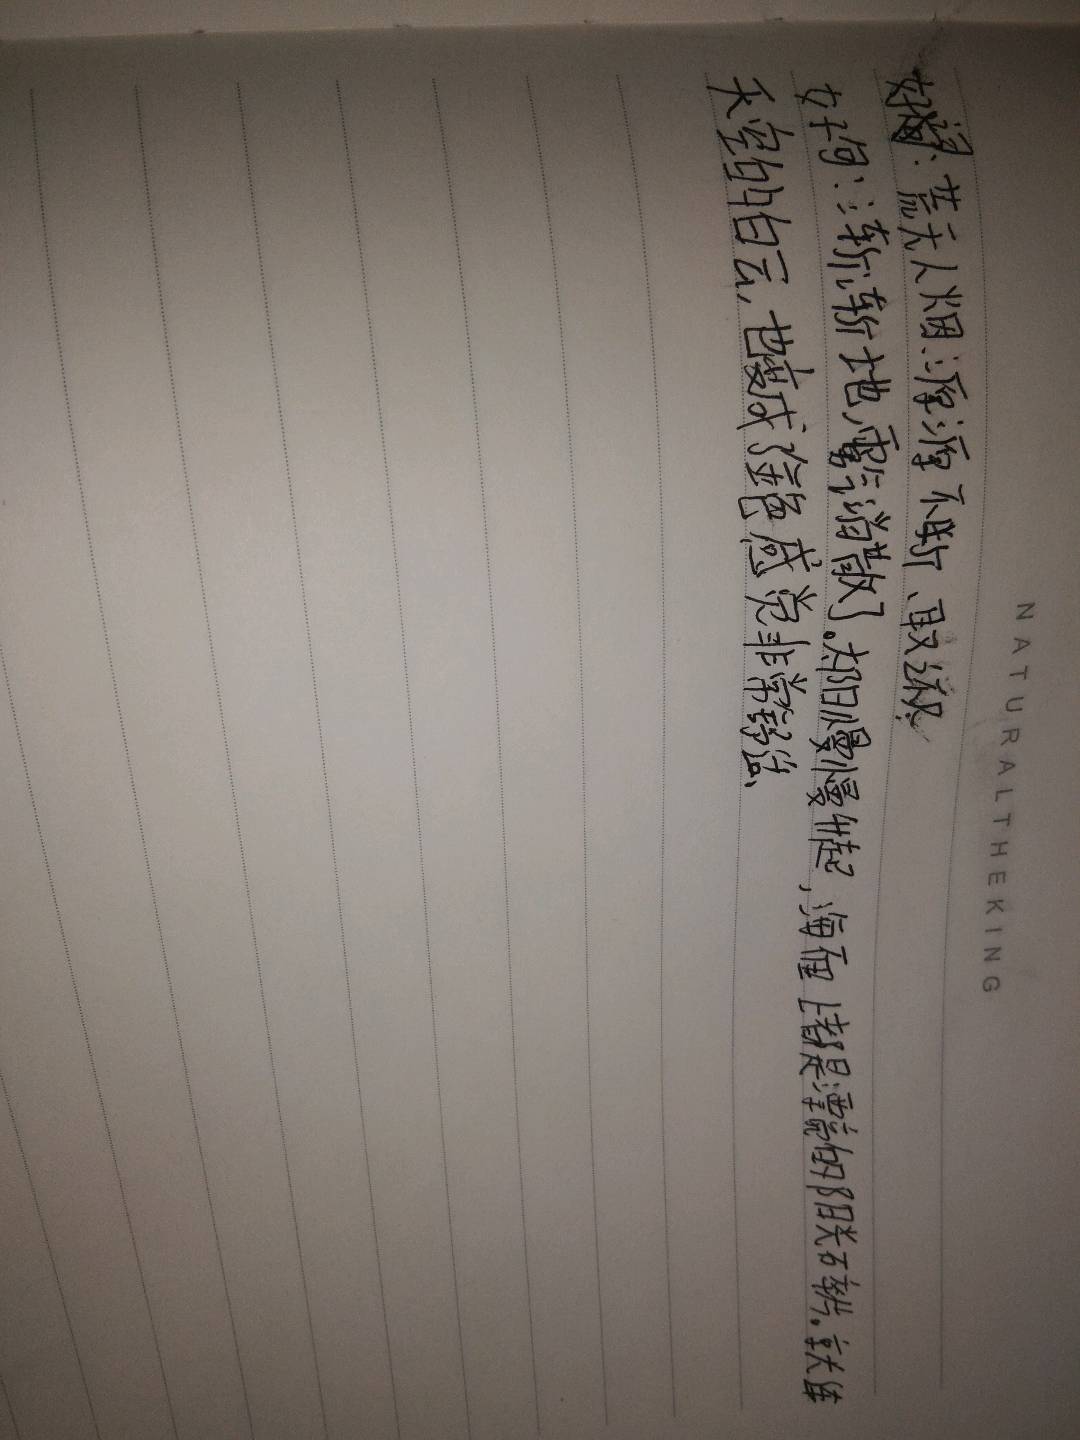 NATURALTHEKING
好词：荒无人烟、源源不断、取
好句：渐渐地，雾消散了。太阳慢慢升起，海面上都是洒的阳光碎片。就连
天空的白云，也变成金色感觉非常舒